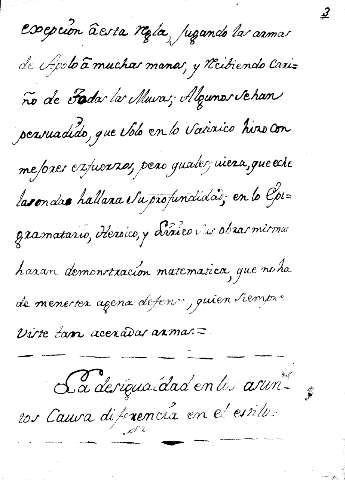 3
excepcion á esta regla, jugando las armas
de Apolo á muchas manos, y recibiendo cari=
ño de todas las Musas; Algunos se han
persuadido, que solo en lo Satirico hizo con
mejores esfuerzos, pero quales; viera, que eche
las ondas hallara su profundidad; en lo Epi=
gramatario, Heroico, y Lirico sus obras mismas
haran demonstracion matematica, que no ha
de menester agena defensa, quien siempre
viste tan aceradas armas.=
La desigualdad en los asun=
tos Causa diferencia en el estilo.